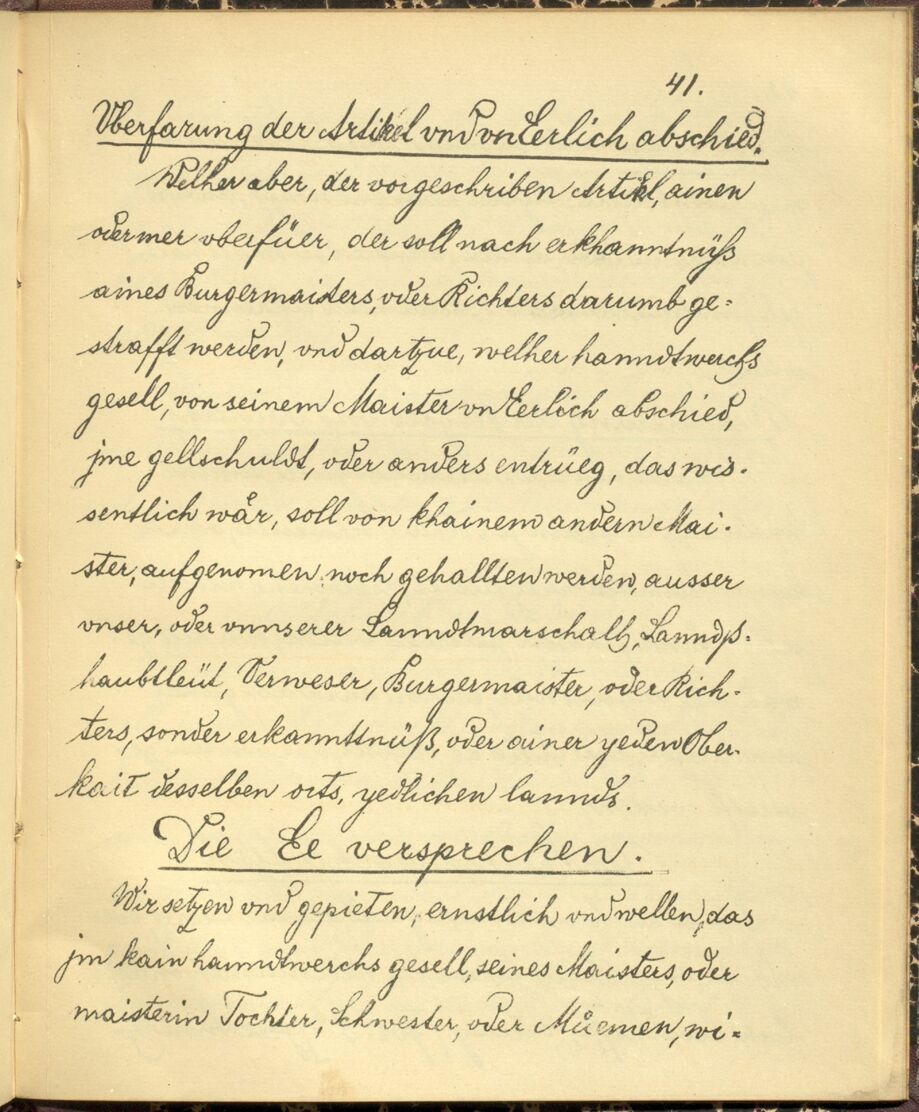 41.
Vberfarung der Artikel vnd vnEerlich abschied.
Welher aber, der vorgeschriben Artikl, ainen
oder mer vberfüer, der soll nach erkhanntnüß
aines Burgermaisters, oder Richters darumb ge=
strafft werden, vnd dartzue, welher hanndtwerchs
gesell, von seinem Maister vnEerlich abschied,
jme gellschuldt, oder anders entrüeg, das wis.
sentlich wår, soll von khainem andern Mai.
ster, aufgenomen noch gehallten werden, ausser
vnser, oder vnnserer Lanndtmarschalh, Lanndß.
haubtleüt, Verweser, Burgermaister, oder Rich.
ters, sonder erkanntnüß, oder ainer yeden Ober.
kait desselben orts, yedlichen lannds.
Die Ee versprechen.
Wir setzen vnd gepieten, ernstlich vnd wellen, das
jm kain hanndtwerchs gesell, seines Maisters, oder
maisterin Tochter, Schwester, oder Müemen, wi=